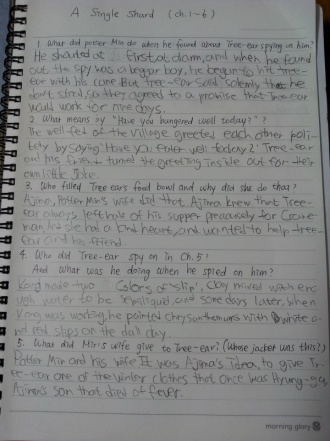 A Single Shard (ch.1~6)
1. What did potter Min do when he found about Tree-ear spying on him?
He shouted at first, and when he found
out the spy was a beggar boy, he began to hit Tree-
ear with his cane. But Tree-ear said solemnly that he
don't steal, so they agreed to a promise that Tree-ear
would work for nine days.
2. What means by "Have you hungered well today?" ?
The well-fed of the village greeted each other poli-
tely by saying "Have you eaten well today?" Tree-ear
and his friend turned the greeting inside out for their
own little joke.
3. Who filled Tree ears food bowl and why did she do that?
Ajima, Potter Min's wife did that, Ajima knew that Tree-
ear always left half of his supper for Crane-
man, he she had a kind heart, and wanted to help tree-
ear and his friend.
4. Who did Tree-ear spy on in Ch.5?
And what was he doing when he spied on him?
Kang made two colors of "slip", clay mixed with eno
ugh water to be semiliquid and some days later, when
Kang was working, he painted chrysanthemums with white a-
nd red slips on the dull clay.
5. What did Min's wife give to Tree-ear? (Whose jacket was this?)
Potter Min and his wife It was Ajima's idea, to give Tr-
ee-ear one of the winter clothes that once was Hyung-gu,
Ajima's son that died of fever.
morning glory